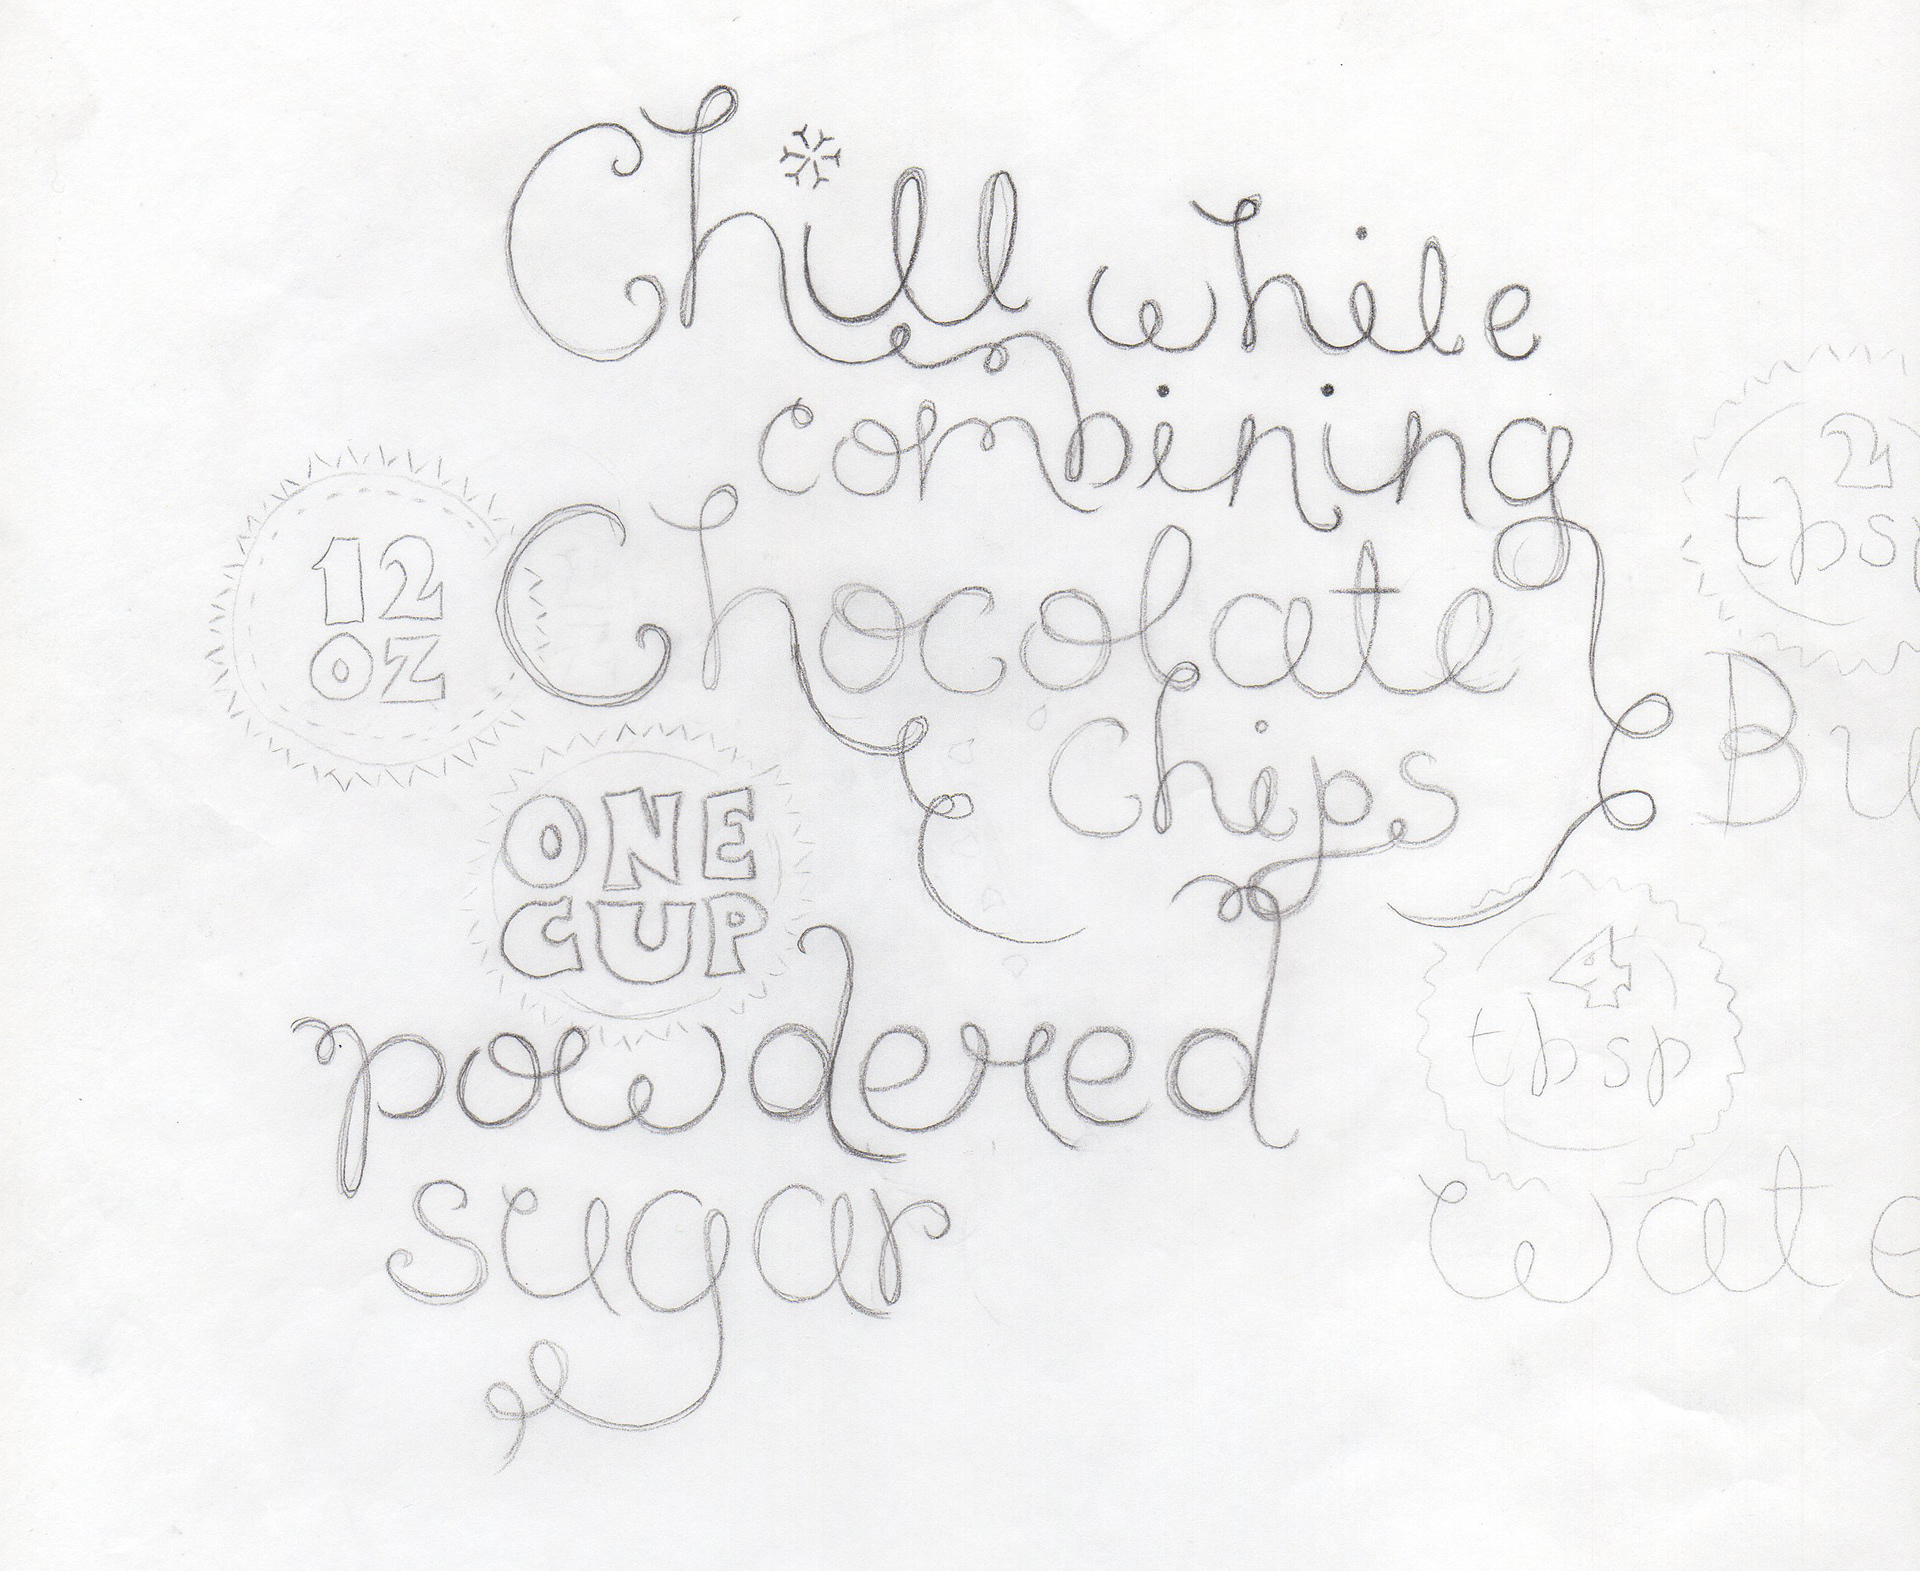 Chill while
combining
12
oz
Chocolate
Chips
ONE
CUP
powdered
sugar
2
tbsp
Bu
4
tbsp
wate